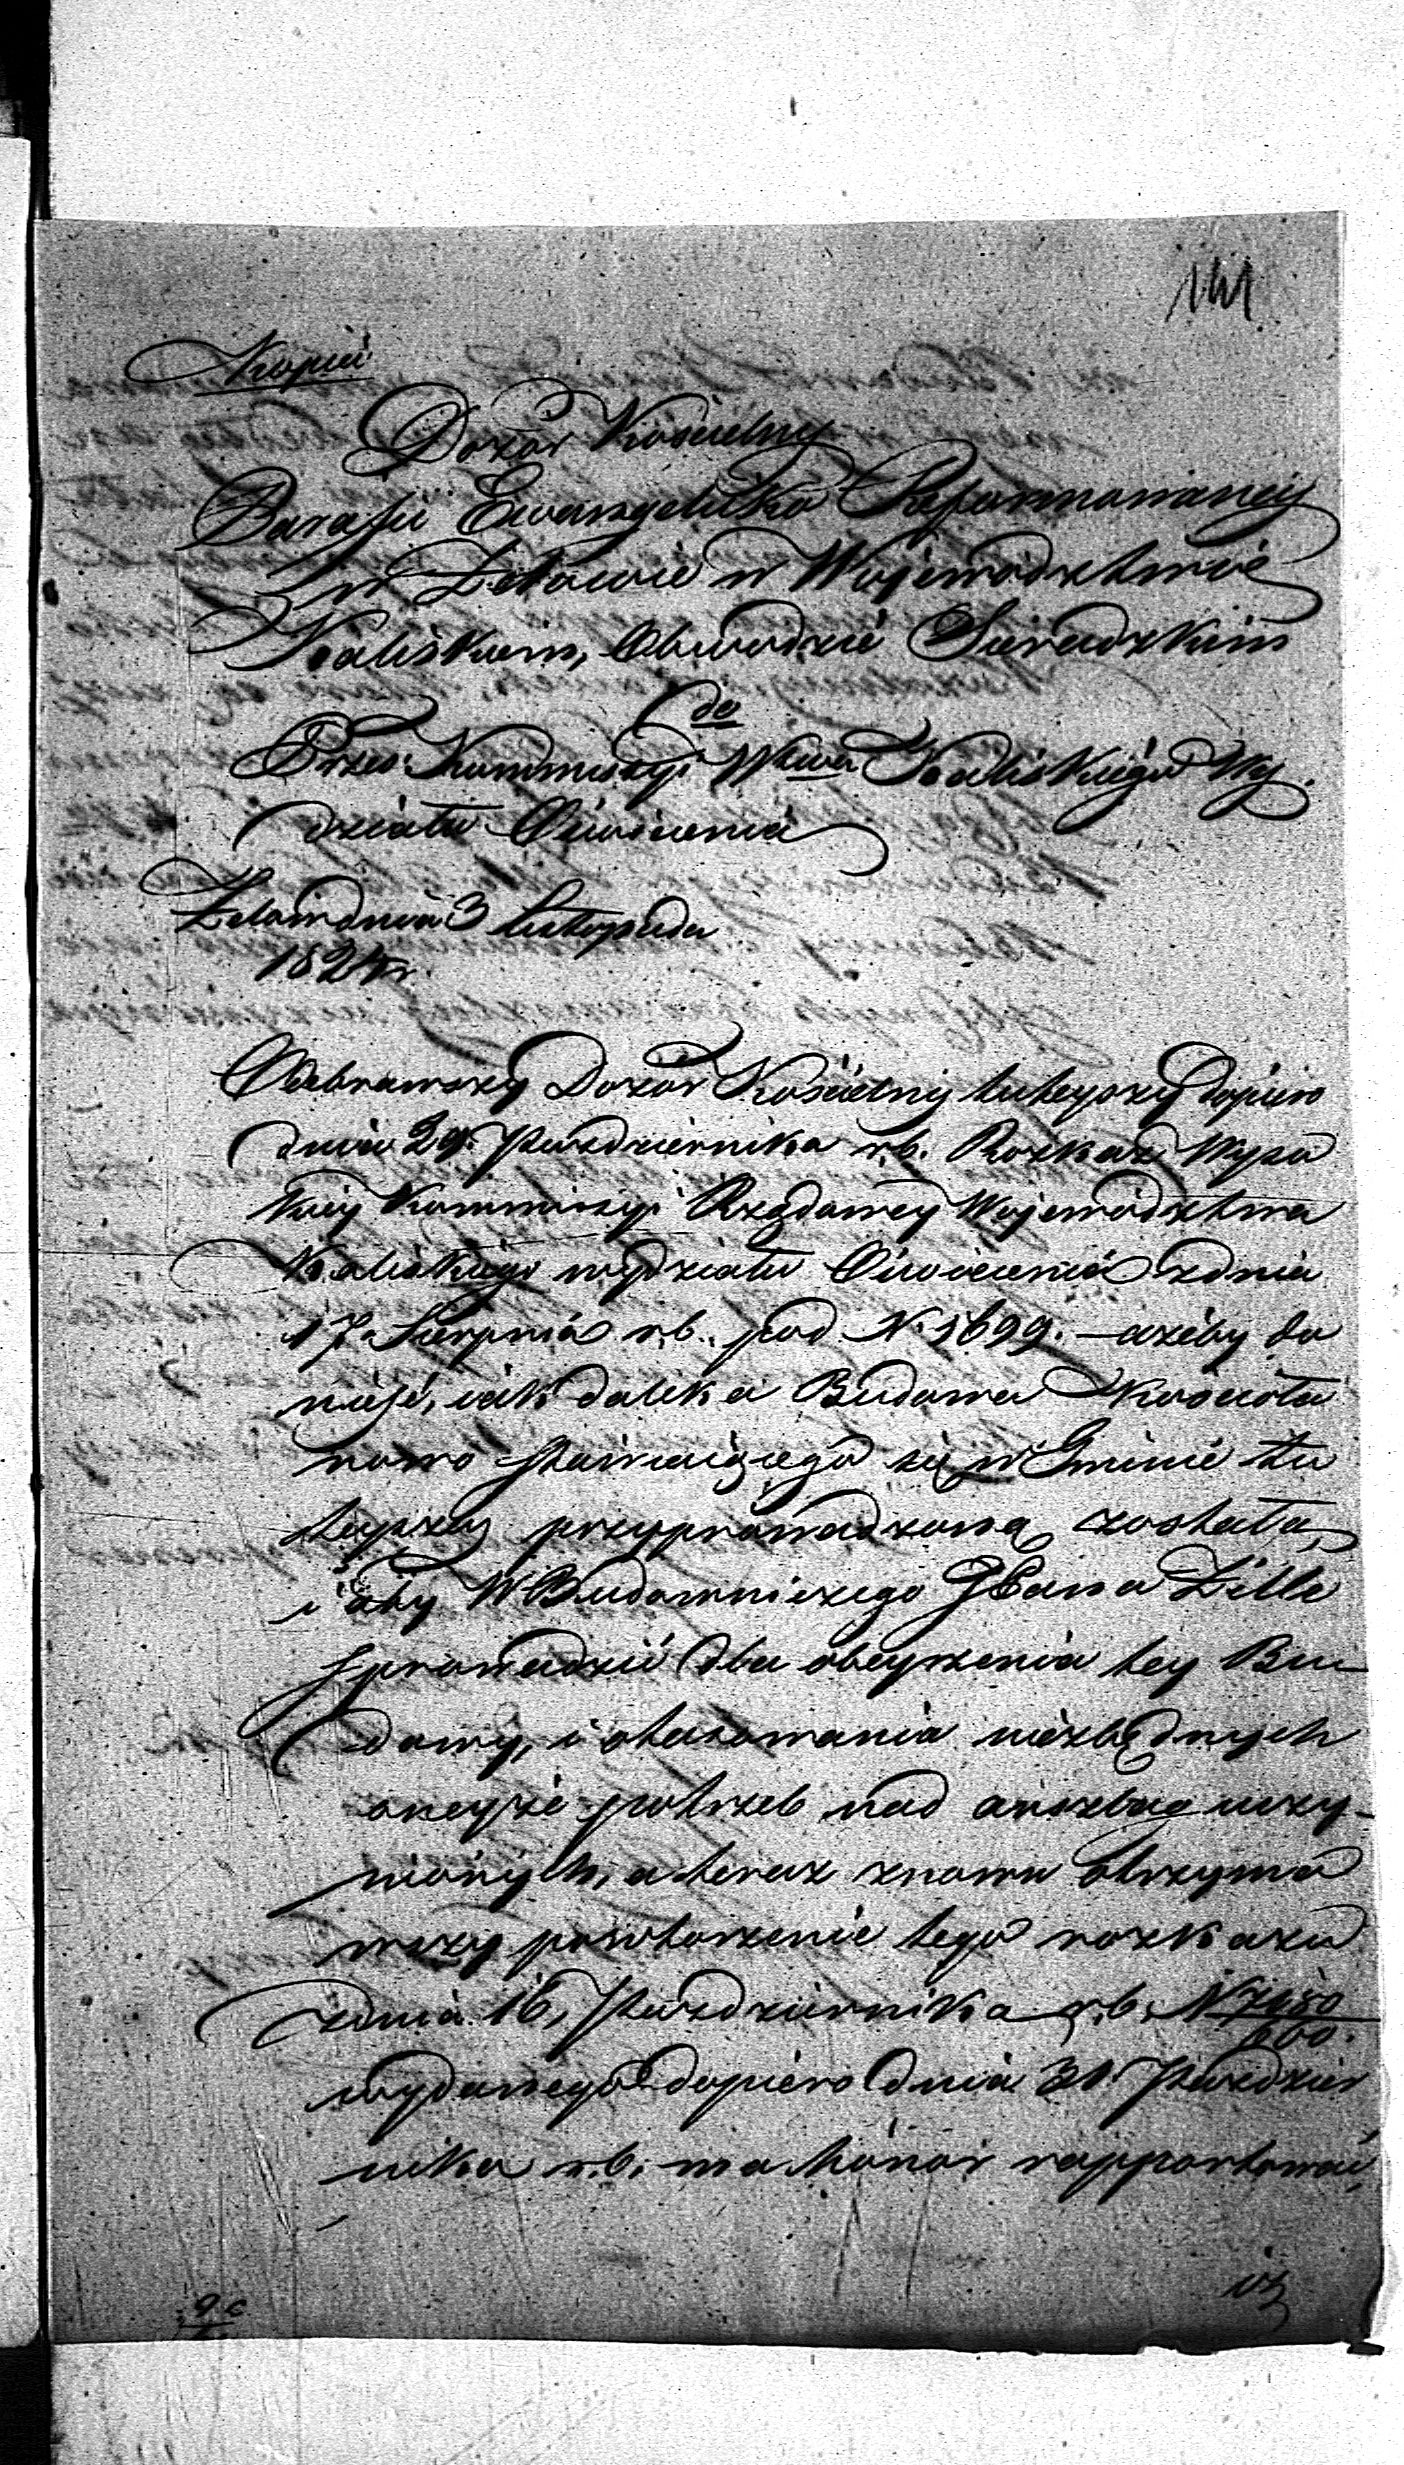 141
Kopia
Dozór Kościelny
Parafii Ewangelicko Reformowaney
w Zelowie w Wojewodztwie
Kaliskiem, Obwodzie Sieradzkim
do
Przes: Kommissyi Wtwa Kaliskiego Wy
działu Oświecenia
Zelow dnia 3 Listopada
1824 r.
Odebrawszy Dozór Kościelny tuteyszy dopiero
dnia 29. Pazdziernika r.b. Rozkaz Wyso
kiey Kommissyi Rządowey Wojewodztwa
Kaliskiego wydziału Oświecenia z dnia
17 Sierpnia r.b. pod N. 5699. – ażeby do
nieść, iak daleka Budowa Kościoła
nowo stawiaiącego się w Gminie tu
teyszey przyprowadzoną została,
i aby W Budowniczego Zille
sprowadzić dla obeyrzenia tey Bu-
dowy, i otaxowania niezbędnych
oneyże potrzeb nad anszlag uczy-
nionych, a teraz znowu otrzyma
wszy powtorzenie tego rozkazu
z dnia 16, Pazdziernika r.b. N
wydanego dopiero dnia 31. Pazdzier
nika r.b. ma honor rapportować,
iż